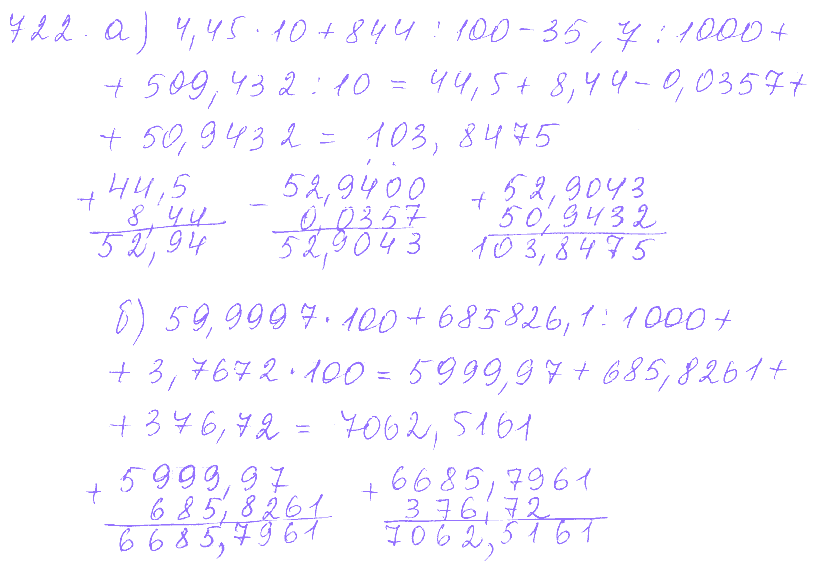 722. а) 4,45 · 10 + 844 : 100 - 35,7 : 1000 +
+ 509,432 : 10 = 44,5 + 8,44 - 0,0357 +
+ 50,9432 = 103,8475
+ 44,5 - 52,9400 + 52,9043
8,44 0,0357 50,9432
52,94 52,9043 103,8475
б) 59,9997 · 100 + 685826,1 : 1000 +
+ 3,7672 · 100 = 5999,97 + 685,8261 +
+ 376,72 = 7062,5161
+ 5999,97 + 6685,7961
685,8261 376,72
6685,7961 7062,5161